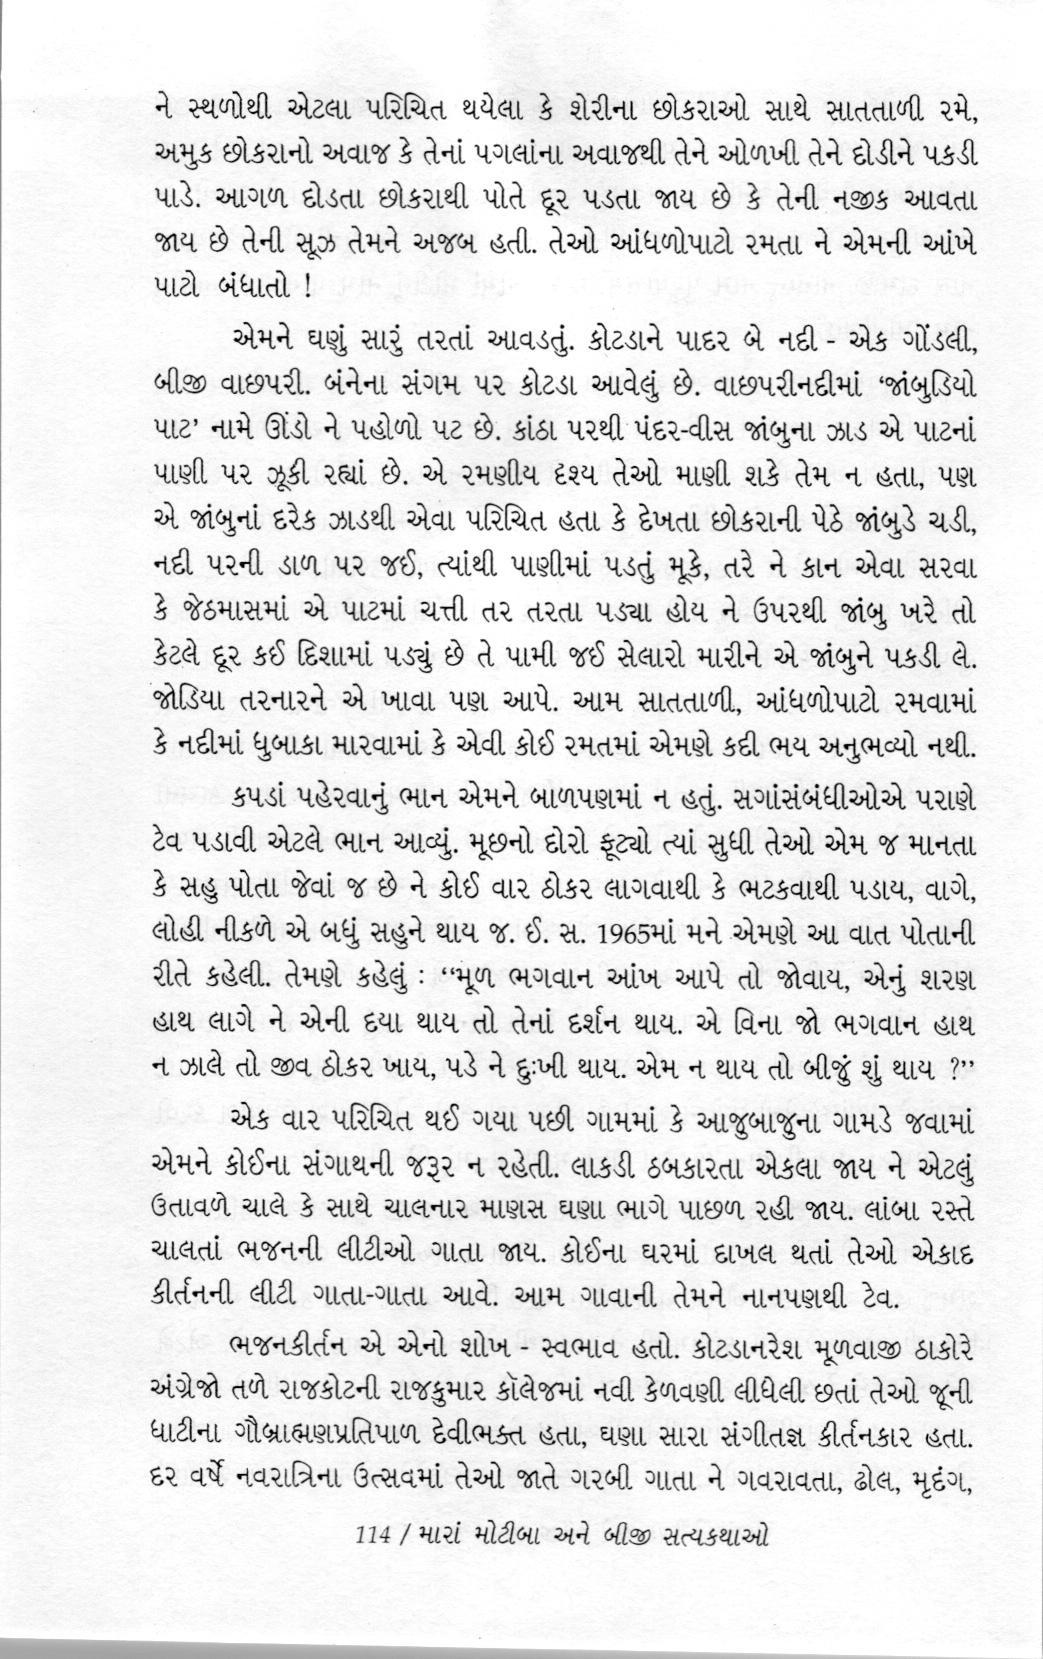 ને સ્થળોથી એટલા પરિચિત થયેલા કે શેરીના છોકરાઓ સાથે સાતતાળી રમે,
અમુક છોકરાનો અવાજ કે તેનાં પગલાંના અવાજથી તેને ઓળખી તેને દોડીને પકડી
પાડે. આગળ દોડતા છોકરાથી પોતે દૂર પડતા જાય છે કે તેની નજીક આવતા
જાય છે તેની સૂઝ તેમને અજબ હતી. તેઓ આંધળોપાટો રમતા ને એમની આંખે
પાટો બંધાતો !
એમને ઘણું સારું તરતાં આવડતું. કોટડાને પાદર બે નદી - એક ગોંડલી,
બીજી વાછપરી. બંનેના સંગમ પર કોટડા આવેલું છે. વાછપરીનદીમાં ‘જાંબુડિયો
પાટ’ નામે ઊંડો ને પહોળો પટ છે. કાંઠા પરથી પંદર-વીસ જાંબુના ઝાડ એ પાટનાં
પાણી પર ઝૂકી રહ્યાં છે. એ રમણીય દૃશ્ય તેઓ માણી શકે તેમ ન હતા, પણ
એ જાંબુનાં દરેક ઝાડથી એવા પરિચિત હતા કે દેખતા છોકરાની પેઠે જાંબુડે ચડી,
નદી પરની ડાળ પર જઈ, ત્યાંથી પાણીમાં પડતું મૂકે, તરે ને કાન એવા સરવા
કે જેઠમાસમાં એ પાટમાં ચત્તી તર તરતા પડ્યા હોય ને ઉપરથી જાંબુ ખરે તો
કેટલે દૂર કઈ દિશામાં પડ્યું છે તે પામી જઈ સેલારો મારીને એ જાંબુને પકડી લે.
જોડિયા તરનારને એ ખાવા પણ આપે. આમ સાતતાળી, આંધળોપાટો રમવામાં
કે નદીમાં ધુબાકા મારવામાં કે એવી કોઈ રમતમાં એમણે કદી ભય અનુભવ્યો નથી.
કપડાં પહેરવાનું ભાન એમને બાળપણમાં ન હતું. સગાંસંબંધીઓએ પરાણે
ટેવ પડાવી એટલે ભાન આવ્યું. મૂછનો દોરો ફૂટ્યો ત્યાં સુધી તેઓ એમ જ માનતા
કે સહુ પોતા જેવાં જ છે ને કોઈ વાર ઠોકર લાગવાથી કે ભટકવાથી પડાય, વાગે,
લોહી નીકળે એ બધું સહુને થાય જ. ઈ. સ. 1965માં મને એમણે આ વાત પોતાની
રીતે કહેલી. તેમણે કહેલું : “મૂળ ભગવાન આંખ આપે તો જોવાય, એનું શરણ
હાથ લાગે ને એની દયા થાય તો તેનાં દર્શન થાય. એ વિના જો ભગવાન હાથ
ન ઝાલે તો જીવ ઠોકર ખાય, પડે ને દુઃખી થાય. એમ ન થાય તો બીજું શું થાય ?”
એક વાર પરિચિત થઈ ગયા પછી ગામમાં કે આજુબાજુના ગામડે જવામાં
એમને કોઈના સંગાથની જરૂર ન રહેતી. લાકડી ઠબકારતા એકલા જાય ને એટલું
ઉતાવળે ચાલે કે સાથે ચાલનાર માણસ ઘણા ભાગે પાછળ રહી જાય. લાંબા રસ્તે
ચાલતાં ભજનની લીટીઓ ગાતા જાય. કોઈના ઘરમાં દાખલ થતાં તેઓ એકાદ
કીર્તનની લીટી ગાતા-ગાતા આવે. આમ ગાવાની તેમને નાનપણથી ટેવ.
ભજનકીર્તન એ એનો શોખ - સ્વભાવ હતો. કોટડાનરેશ મૂળવાજી ઠાકોરે
અંગ્રેજો તળે રાજકોટની રાજકુમાર કૉલેજમાં નવી કેળવણી લીધેલી છતાં તેઓ જૂની
ધાટીના ગૌબ્રાહ્મણપ્રતિપાળ દેવીભક્ત હતા, ઘણા સારા સંગીતજ્ઞ કીર્તનકાર હતા.
દર વર્ષે નવરાત્રિના ઉત્સવમાં તેઓ જાતે ગરબી ગાતા ને ગવરાવતા, ઢોલ, મૃદંગ,
114 / મારાં મોટીબા અને બીજી સત્યકથાઓ